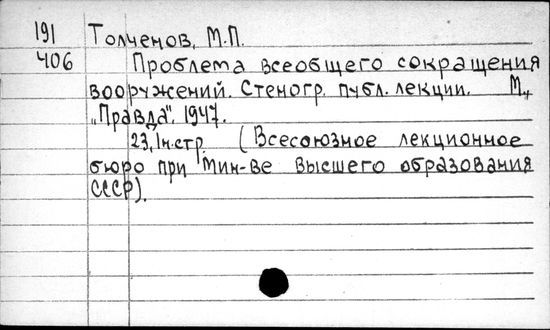 191 Толченов, М.П.
406 Проблема всеобщего сокращения
вооружений. Стеногр. публ. лекции. М.,
„Правда", 1947.
23,1н.стр. (Всесоюзное лекционное
бюро при Мин-ве высшего образования
СССР).